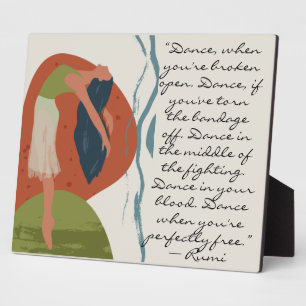 “Dance, when
you're broken
open. Dance, if
you've torn
the bandage
off. Dance in
the middle of
the fighting.
Dance in your
blood. Dance
when you're
perfectly free.”
— Rumi